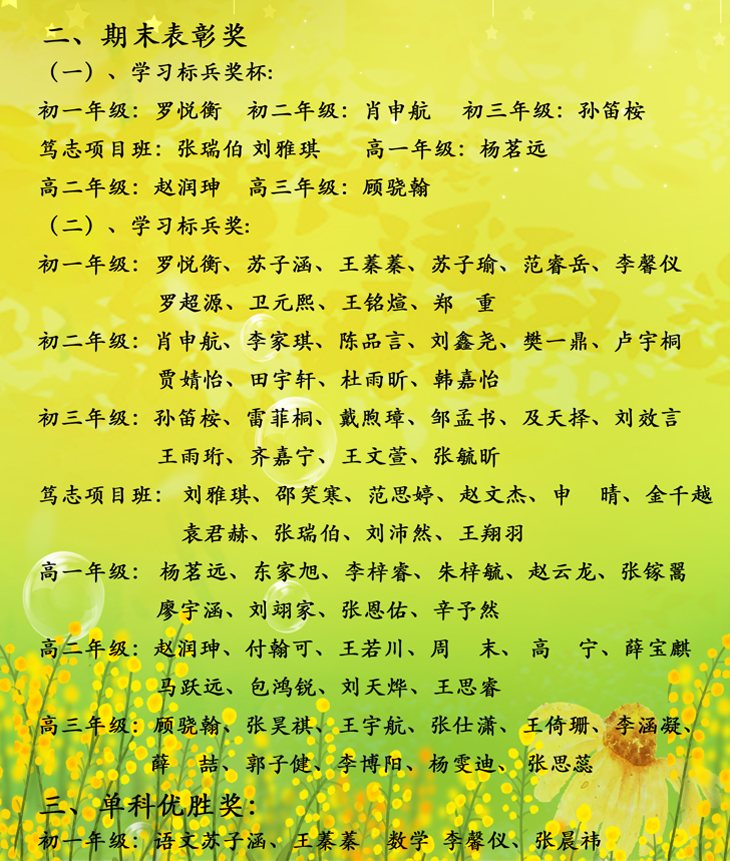 二、期末表彰奖
（一）、学习标兵奖杯:
初一年级：罗悦衡　初二年级：肖申航　初三年级：孙笛桉
笃志项目班：张瑞伯 刘雅琪　　高一年级：杨茗远
高二年级：赵润珅　高三年级：顾骁翰
（二）、学习标兵奖:
初一年级：罗悦衡、苏子涵、王蓁蓁、苏子瑜、范睿岳、李馨仪
罗超源、卫元熙、王铭煊、郑　重
初二年级：肖申航、李家琪、陈品言、刘鑫尧、樊一鼎、卢宇桐
贾婧怡、田宇轩、杜雨昕、韩嘉怡
初三年级：孙笛桉、雷菲桐、戴煦璋、邹孟书、及天择、刘效言
王雨珩、齐嘉宁、王文萱、张毓昕
笃志项目班： 刘雅琪、邵笑寒、范思婷、赵文杰、申　晴、金千越
袁君赫、张瑞伯、刘沛然、王翔羽
高一年级： 杨茗远、东家旭、李梓睿、朱梓毓、赵云龙、张镓翯
廖宇涵、刘翊家、张恩佑、辛予然
高二年级：赵润珅、付翰可、王若川、周　末、高　宁、薛宝麒
马跃远、包鸿锐、刘天烨、王思睿
高三年级：顾骁翰、张昊祺、王宇航、张仕潇、王倚珊、李涵凝、
薛　喆、郭子健、李博阳、杨雯迪、张思蕊
三、单科优胜奖：
初一年级：语文苏子涵、王蓁蓁　数学 李馨仪、张晨祎